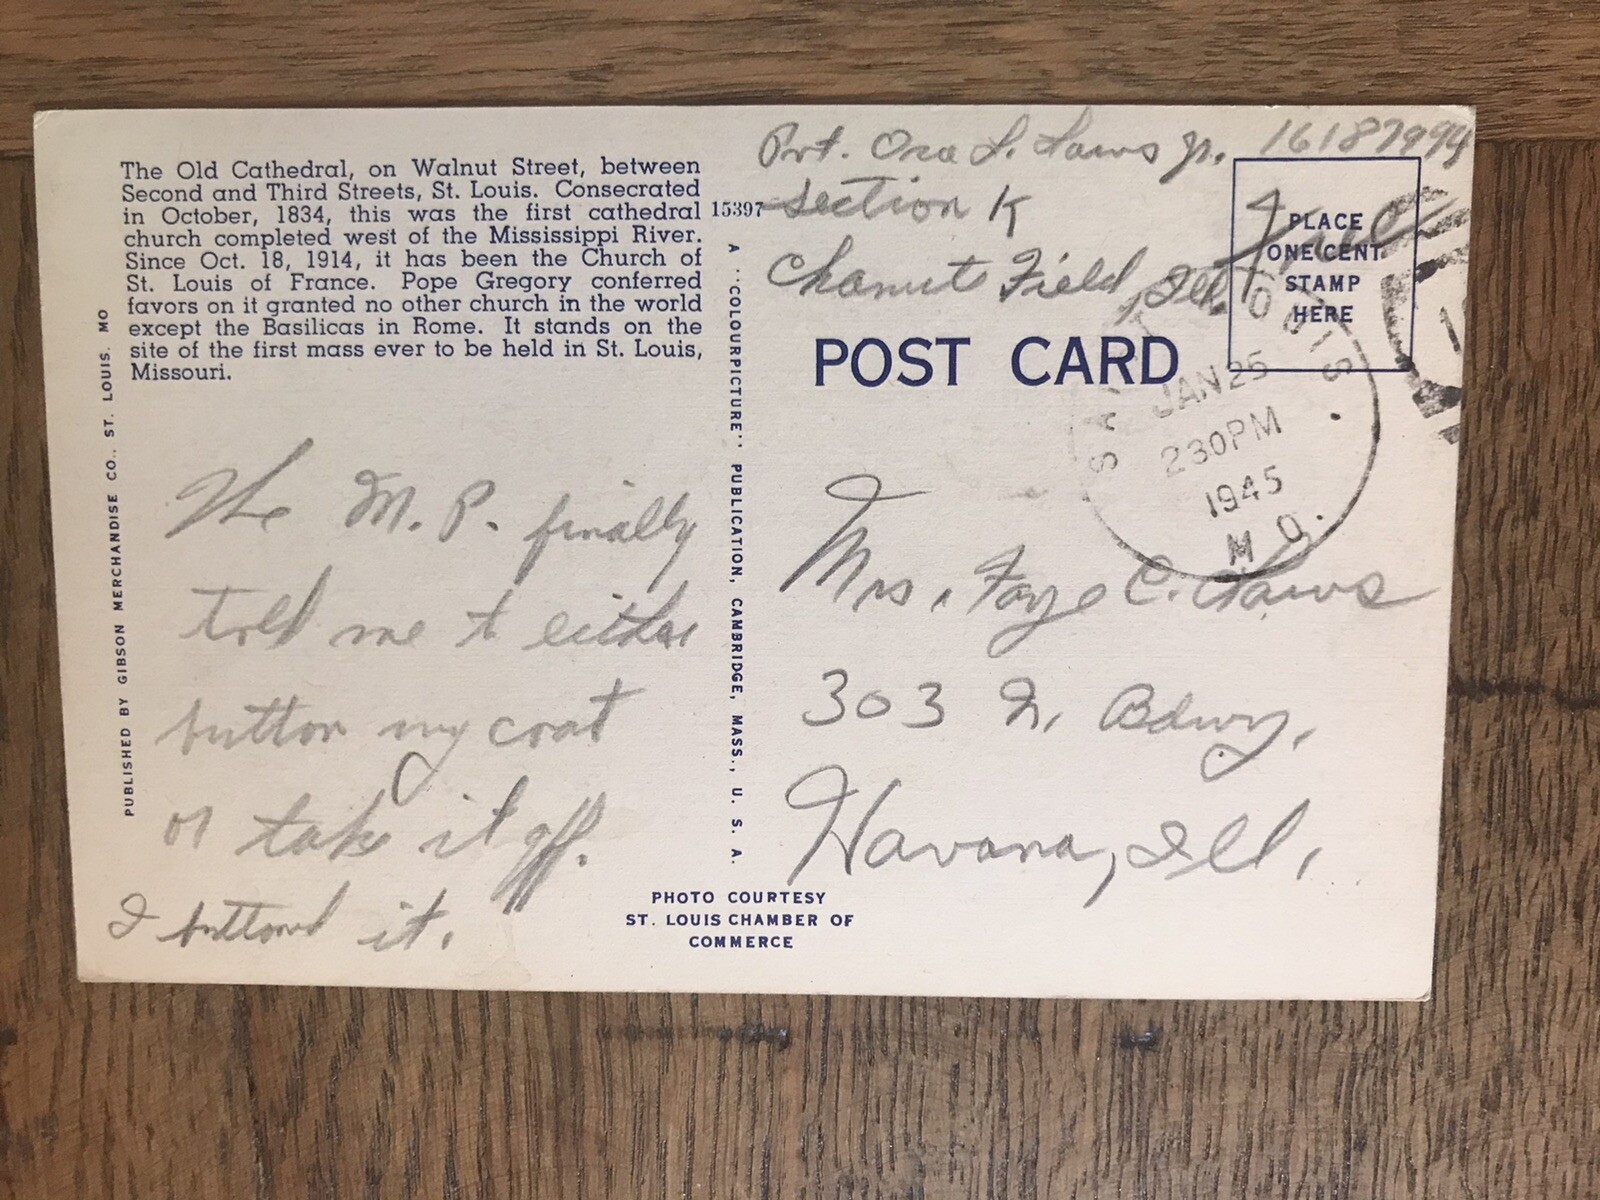 The Old Cathedral, on Walnut Street, between
Second and Third Streets, St. Louis. Consecrated
in October, 1834, this was the first cathedral
church completed west of the Mississippi River.
Since Oct. 18, 1914, it has been the Church of
St. Louis of France. Pope Gregory conferred
favors on it granted no other church in the world
except the Basilicas in Rome. It stands on the
site of the first mass ever to be held in St. Louis,
Missouri.
PUBLISHED BY GIBSON MERCHANDISE CO., ST. LOUIS. MO
The M.P. finally
told me to either
button my coat
or take it off.
I buttoned it.
15397
A "COLOURPICTURE" PUBLICATION, CAMBRIDGE, MASS., U. S. A.
PHOTO COURTESY
ST. LOUIS CHAMBER OF
COMMERCE
Pvt. Ora L. Laws Jr. 16187994
Section K
Chanute Field, Ill.
Free
PLACE
ONE CENT
STAMP
HERE
POST CARD
SAINT LOUIS
JAN 25
230PM
1945
MO.
Mrs. Faye C. Laws
303 N. Bdwy.
Havana, Ill.